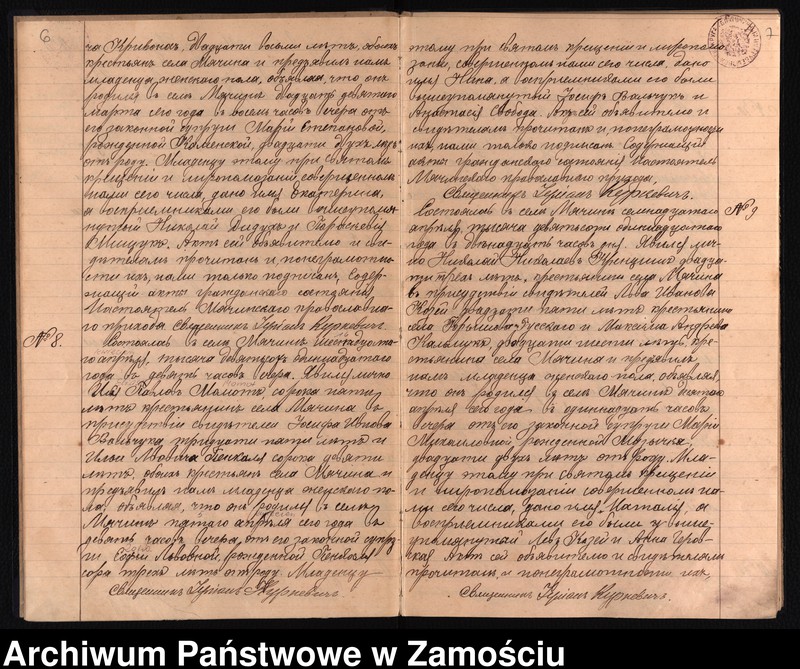 6
ча Кривоносъ, двадцати восьми лѣтъ, обоихъ
крестьянъ села Мячина и предъявилъ намъ
младенца женскаго пола, объявляя, что онъ
родился въ селѣ Мячинѣ двадцать девятаго
марта сего года въ восемь часовъ вечера отъ
его законной супруги Маріи Степановой,
рожденной Каменской, двадцати двухъ лѣтъ
отъ роду. Младенцу этому при святомъ
крещеніи и мѵропомазаніи, совершенномъ
нами сего числа, дано имя Екатерина,
а воспріемниками его были вышеупомя-
нутый Николай и Параскевія
Актъ сей объявителю и сви-
дѣтелямъ прочитанъ и, по неграмотно-
сти ихъ, нами только подписанъ. Содер-
жащій акты гражданскаго состоянія
Настоятель Мячинскаго православна-
го прихода Священникъ Куркевичъ.
№ 8.
Состоялось въ селѣ Мячинѣ шестнадцата-
го апрѣля, тысяча девятьсотъ одиннадцатаго
года въ девять часовъ вечера. Явился лично
Павловъ сорока пяти
лѣтъ крестьянинъ села Мячина въ
присутствіи свидѣтелей Іосифа Иванова
Вавчука тридцати пяти лѣтъ и
Ильи Львовича сорока девяти
лѣтъ, обоихъ крестьянъ села Мячина и
предъявилъ намъ младенца женскаго по-
ла, объявляя, что онъ родился въ селѣ
Мячинѣ пятаго апрѣля сего года въ
девять часовъ вечера, отъ его законной супру-
ги Софіи Львовной, рожденной
сорока трехъ лѣтъ отъ роду. Младенцу
Священникъ Куркевичъ.
7
этому при святомъ крещеніи и мѵропома-
заніи, совершенномъ нами сего числа, дано
имя Нина, а воспріемниками его были
вышеупомянутый Іосифъ Вавчукъ и
Анастасія Свобода. Актъ сей объявителю и
свидѣтелямъ прочитанъ и, по неграмотности
ихъ, нами только подписанъ. Содержащій
акты гражданскаго состоянія Настоятель
Мячинскаго православнаго прихода
Священникъ Куркевичъ.
№ 9
Состоялось въ селѣ Мячинѣ семнадцатаго
апрѣля, тысяча девятьсотъ одиннадцатаго
года въ двѣнадцать часовъ дня. Явился лич-
но Николай Николаевъ двадца-
ти трехъ лѣтъ, крестьянинъ села Мячина
въ присутствіи свидѣтелей Льва Иванова
Козей двадцати пяти лѣтъ крестьянина
села Русскаго и Максима Андреева
двадцати шести лѣтъ, кре-
стьянина села Мячина и предъявилъ
намъ младенца женскаго пола, объявляя,
что онъ родился въ селѣ Мячинѣ пятаго
апрѣля сего года въ одиннадцать часовъ
вечера отъ его законной супруги Маріи
Михаиловой, рожденной
двадцати двухъ лѣтъ отъ роду. Мла-
денцу этому при святомъ крещеніи
и мѵропомазаніи совершенномъ на-
ми сего числа, дано имя Наталія, а
воспріемниками его были выше-
упомянутый Левъ Козей и Анна
Актъ сей объявителю и свидѣтелямъ
прочитанъ, и по неграмотности ихъ,
Священникъ Куркевичъ.
Archiwum Państwowe w Zamościu